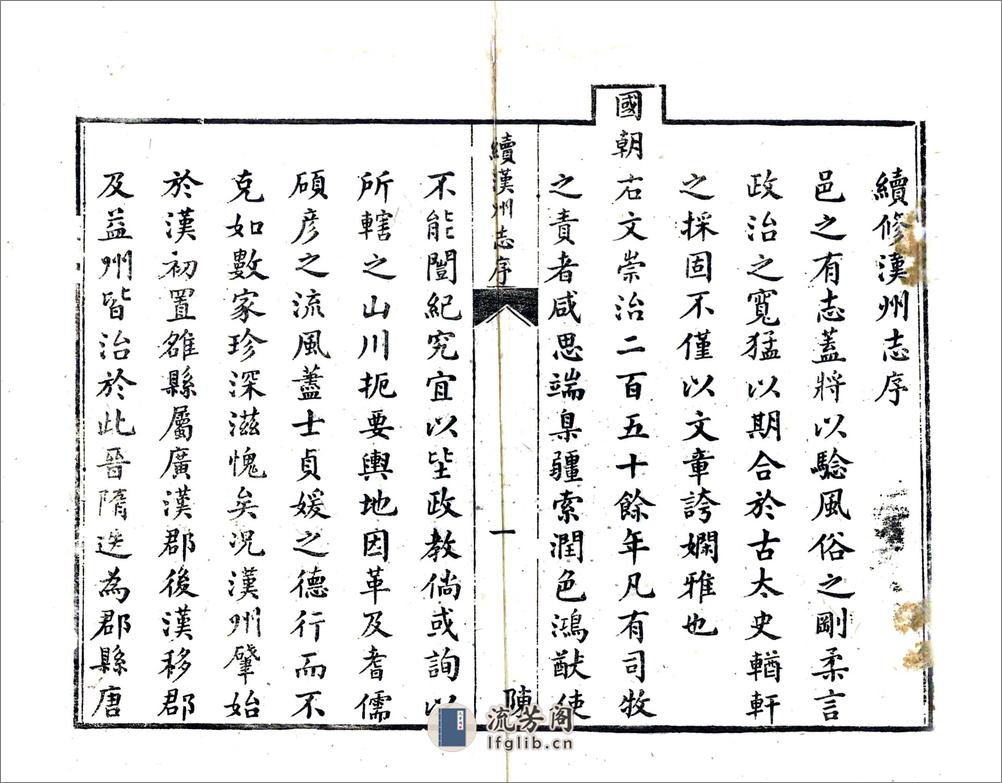 續修漢州志序
邑之有志蓋將以驗風俗之剛柔言
政治之寬猛以期合於古太史輶軒
之採固不僅以文章誇嫻雅也
國朝右文崇治二百五十餘年凡有司牧
之責者咸思端臬疆索潤色鴻猷使
續漢州志序
一
陳
不能闓紀究宜以埊政教倘或詢以
所轄之山川扼要輿地因革及耆儒
碩彥之流風藎士貞媛之德行而不
克如數家珍深滋愧矣況漢州肇始
於漢初置雒縣屬廣漢郡後漢移郡
及益州皆治於此晉隋迭為郡縣唐
流芳阁
lfglib.cn